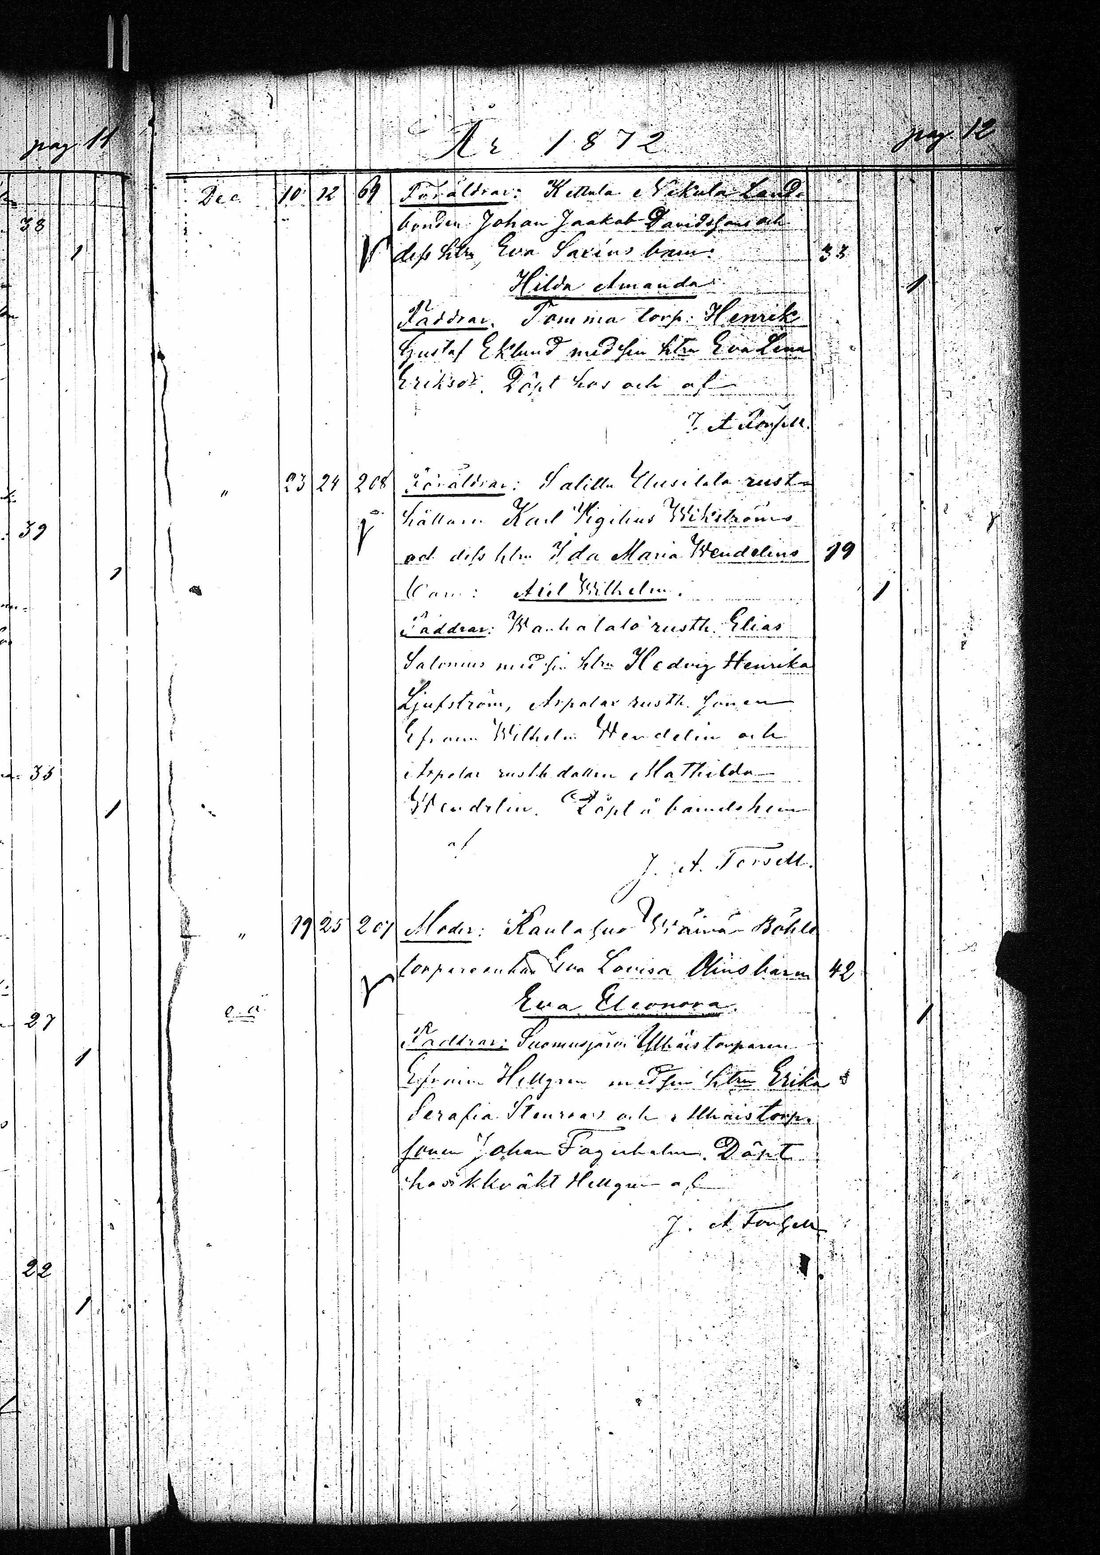 pag 11
38
1
39
1
35
1
27
1
22
1
År 1872
pag. 12
Dec. 10 12 69 Föräldrar: Kettula Nikula Land-
bonden Johan Jaakob Davidsson och
dess htru, Eva Saxius barn: 33
Hilda Amanda 1
Faddrar. Tomma torp: Henrik
Gustaf Eklund med sin htru Eva Lena
Eriksdr. Döpt hos och af
J. A. Forssell.
" 23 24 208 Föräldrar: Salittu Uusitalo rust-
hållare Karl Vigelius Wikströms
och dess htru Ida Maria Wendelins 19
barn: Axel Wilhelm. 1
Faddrar: Wanhatalo rusth. Elias
Salonius med sin htru Hedvig Henrika
Ljufström, Arpalas rusth. sonen
Efraim Wilhelm Wendelin och
Arpalas rusth dottren Mathilda
Wendelin. Döpt å barndshem
af
J. A. Forssell.
" 19 25 207 Moder: Rautasuo
torpareenkan Eva Lovisa barn 42
o. ä. Eva Eleonora. 1
Faddrar: Suomusjärvi torparen
Efraim Hellgren med sin htru Erika
Serafia Stenroos och torp.
sonen Johan Fagerholm. Döpt
hos Hellgren af
J. A. Forssell